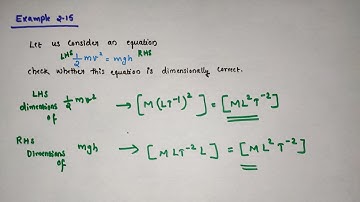 Example 2.15
Let us consider an equation
LHS 1/2 mv² = mgh RHS
check whether this equation is dimensionally correct.
LHS
dimensions of 1/2 mv² → [M (LT⁻¹)²] = [ML²T⁻²]
RHS
Dimensions of mgh → [M LT⁻² L] = [ML²T⁻²]